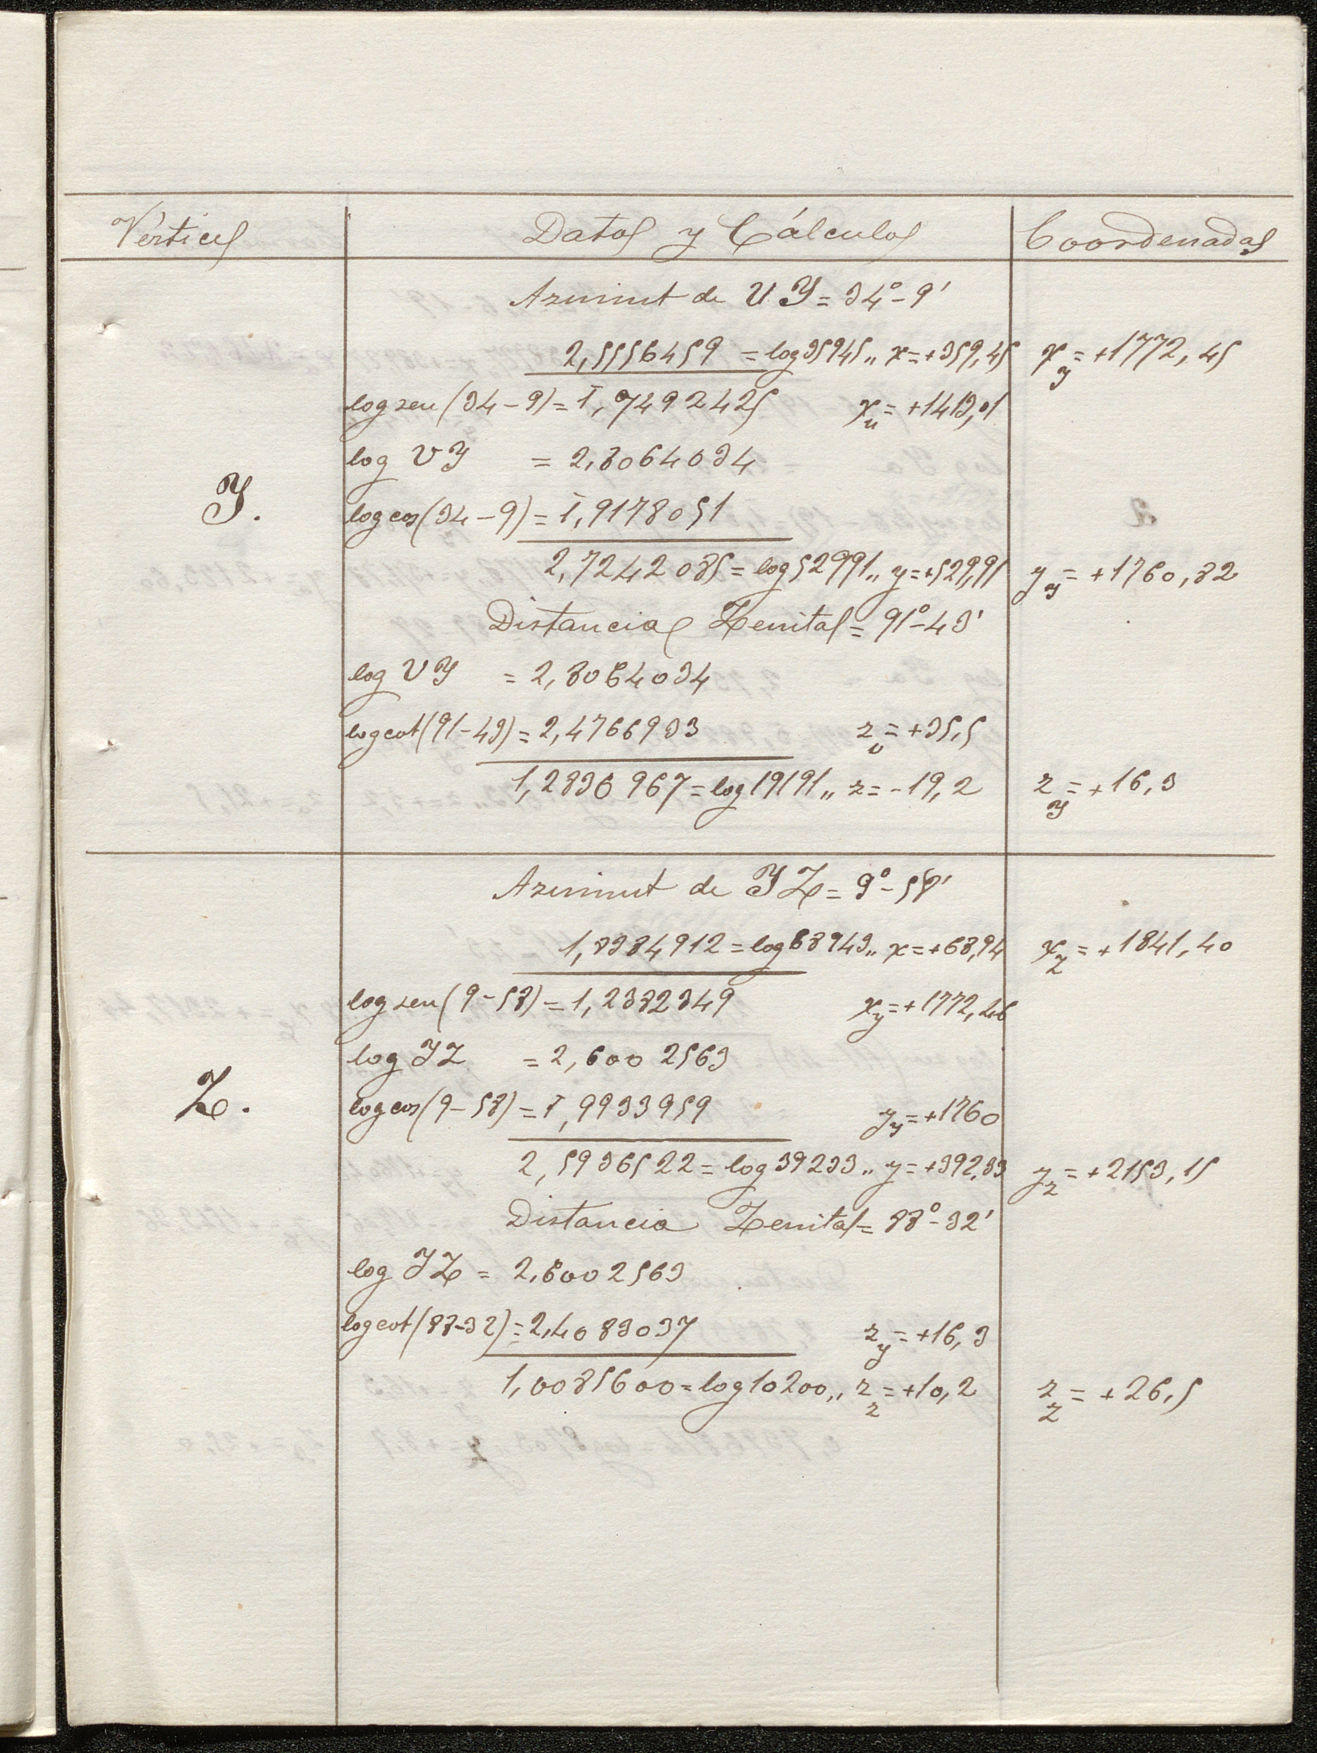 Vértices Datos y Cálculos Coordenadas
Azimut de UY = 34° - 9'
2,5556459 = log 35945,, x = +359,45 x_y = +1772,45
log sen (34 - 9) = 1̄,7492425 x_u = +1413,01
log UY = 2,8064034
Y.
log cos (34 - 9) = 1̄,9178051
2,7242085 = log 52991,, y = +529,91 y_y = +1760,82
Distancias Zenital = 91° - 43'
log UY = 2,8064034
log cot (91 - 43) = 2,4766933 z_u = +35,5
1,2830967 = log 19191,, z = -19,2 z_y = +16,3
Azimut de YZ = 9° - 58'
1,8384912 = log 68943,, x = +68,94 x_z = +1841,40
log sen (9 - 58) = 1,2382349 x_y = +1772,46
log YZ = 2,6002563
Z.
log cos (9 - 58) = 1̄,9933959 y_y = +1760
2,5936522 = log 39233,, y = +392,33 y_z = +2153,15
Distancia Zenital = 88° - 32'
log YZ = 2,6002563
log cot (88-32) = 2,4083037 z_y = +16,3
1,0085600 = log 10200,, z_z = +10,2 z_z = +26,5